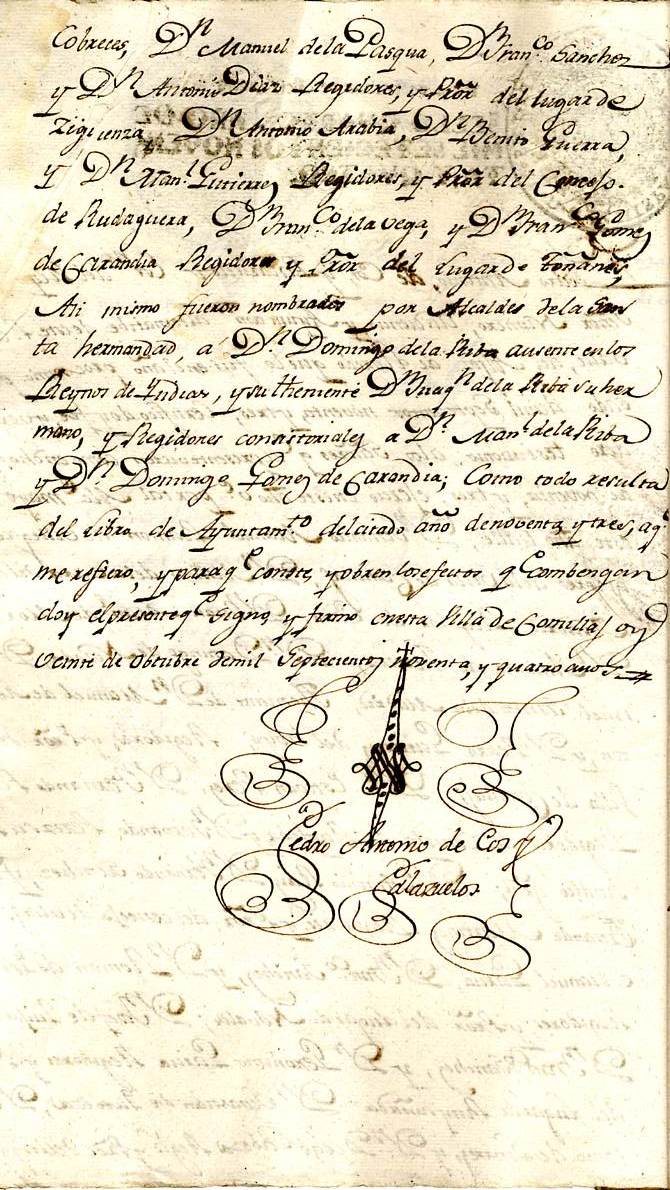 Cobreces, Dn Manuel dela Pasqua, Dn Franco. Sanchez
y Dn Antonio Diaz Regidores, y Pror del lugar de
Zigüenza Dn Antonio Arabia, Dn Benito Guerra,
y Dn Manl Gutierrez Regidores, y Pror del Concejo.
de Rudaguera, Dn Franco dela Vega, y Dn Franco Gomez
de Carandia Regidores y Pror del Lugar de Toñanes,
Asi mismo fueron nombrados por Alcaldes dela San
ta hermandad, á Dn. Domingo dela Riba ausente en los
Reynos de Yndias, y su theniente Dn Juaqn dela Riba su her
mano, y Regidores consistoriales a Dn. Manl dela Riba
y Dn Domingo Gomez de Carandia; Como todo resulta
del Libro de Ayuntamto del citado año de noventa, y tres, a qe
me refiero, y para qe conste, y obren los efectos qe combengan
doy el presente qe signo, y firmo en esta Villa de Comillas oy
veinte de Obtubre de mil Septecientos noventa, y quatro años
Pedro Antonio de Cos y